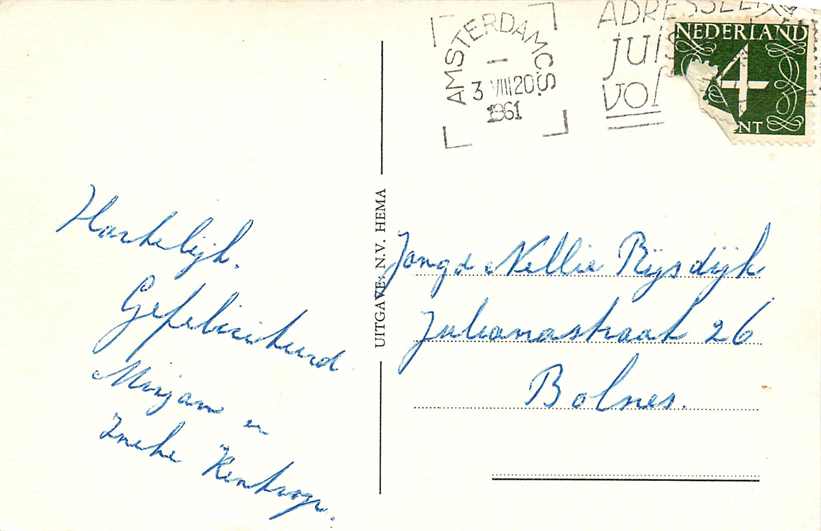 AMSTERDAM C.S.
3 VIII 20
1961
ADRESSEER
JUIS
VOL
NEDERLAND
4
NT
Hartelijk.
Gefeliciteerd
Mirjam en
Ineke
UITGAVE: N.V. HEMA
Jongd Nellie Rijsdijk
Julianastraat 26
Bolnes.